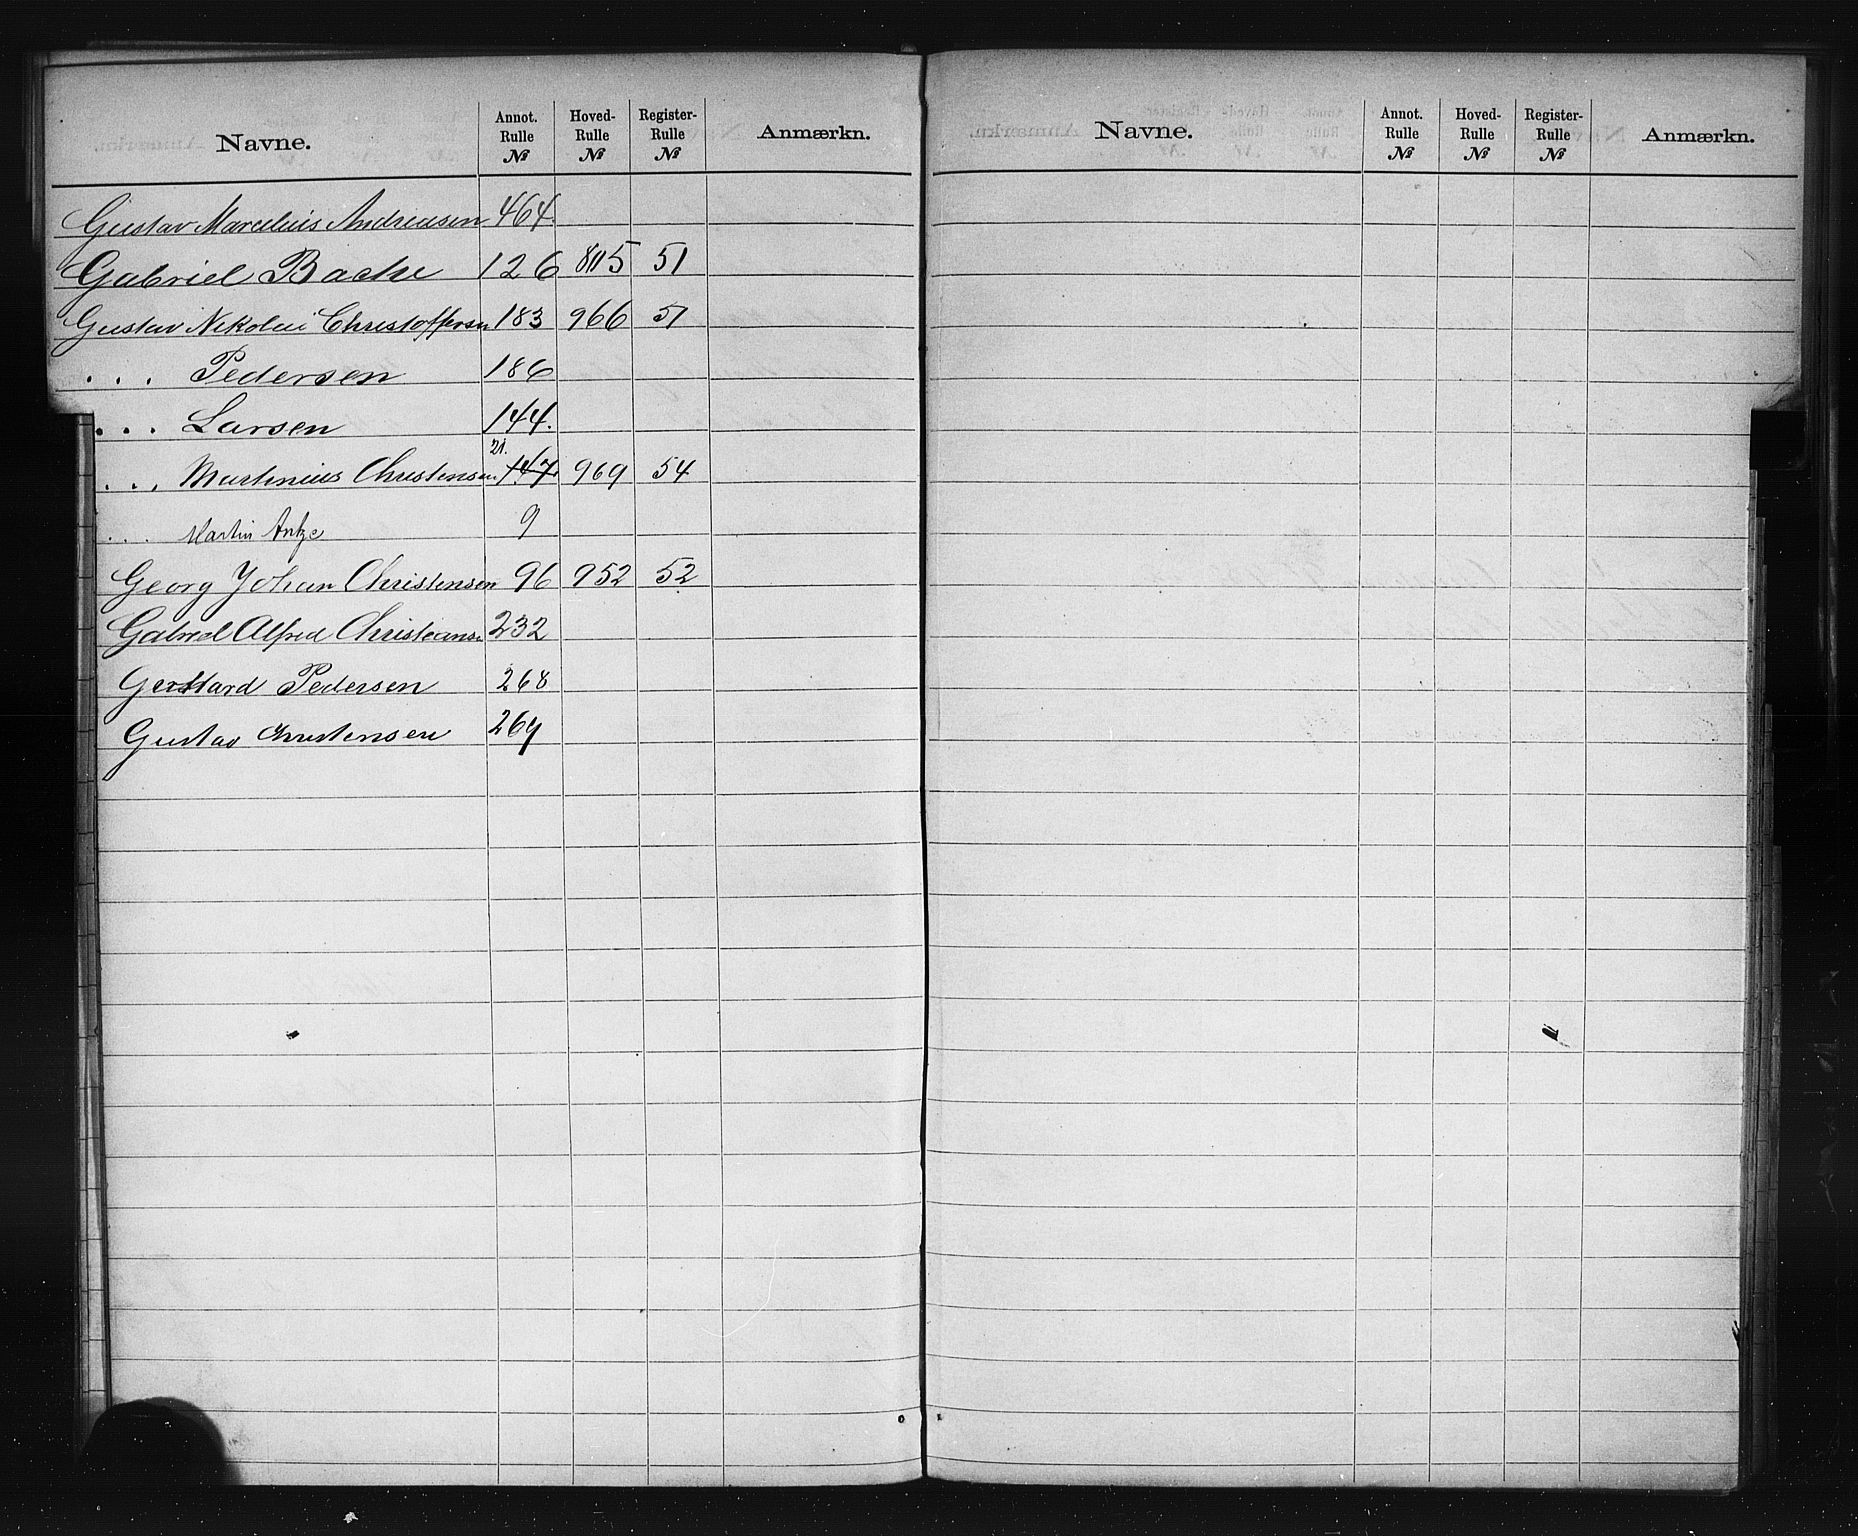 Navne. Annot. Rulle № Hoved-Rulle № Register-Rulle № Anmærkn.
Gustav Marcelius Andreasen 464.
Gabriel Bache 126 815 51
Gustav Nikolai Christoffersen 183 966 51
. . . Pedersen 186
. . . Larsen 144.
21.
. . . Martinius Christensen 147 969 54
. . . Martin 9
Georg Johan Christensen 96 952 52
Gabriel Alfred Christians. 232
Gerhard Pedersen 268
Gustav Christensen 269
Navne. Annot. Rulle № Hoved-Rulle № Register-Rulle № Anmærkn.